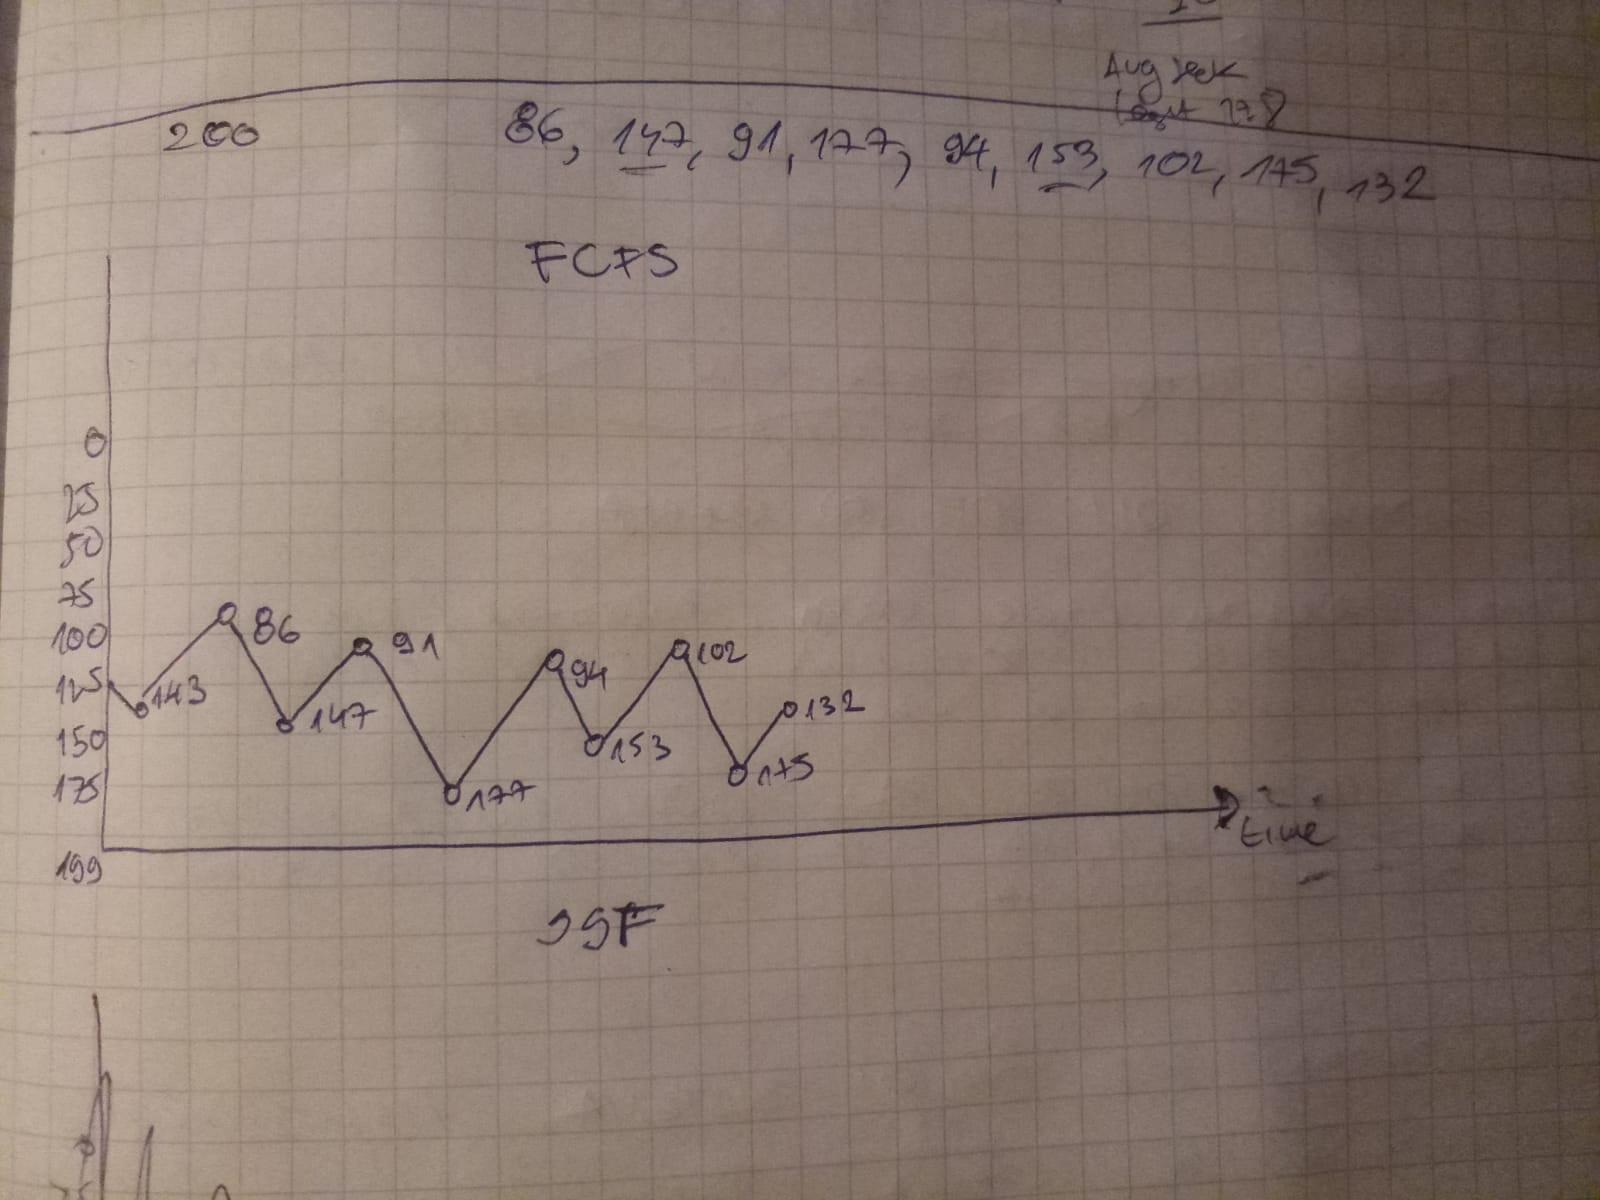 Avg seek
200
86, 147, 91, 177, 94, 153, 102, 175, 132
FCFS
0
25
50
75
100
125
150
175
199
143
86
147
91
177
94
153
102
175
132
time
SSF